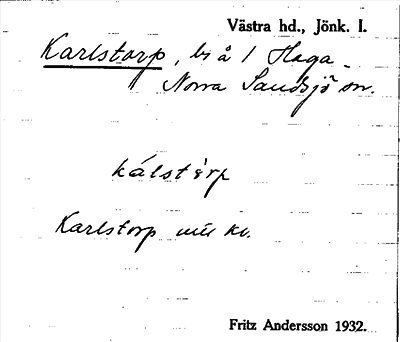 Västra hd., Jönk. l.
Karlstorp, by å 1 Haga
Norra Sandsjö sn.
kálstèrp
Karlstorp
Fritz Andersson 1932.